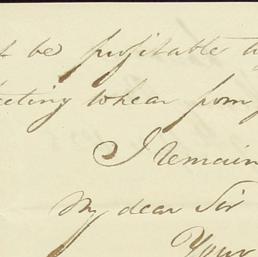 t be profitable t
eting to hear from
I remain
My dear Sir
Your